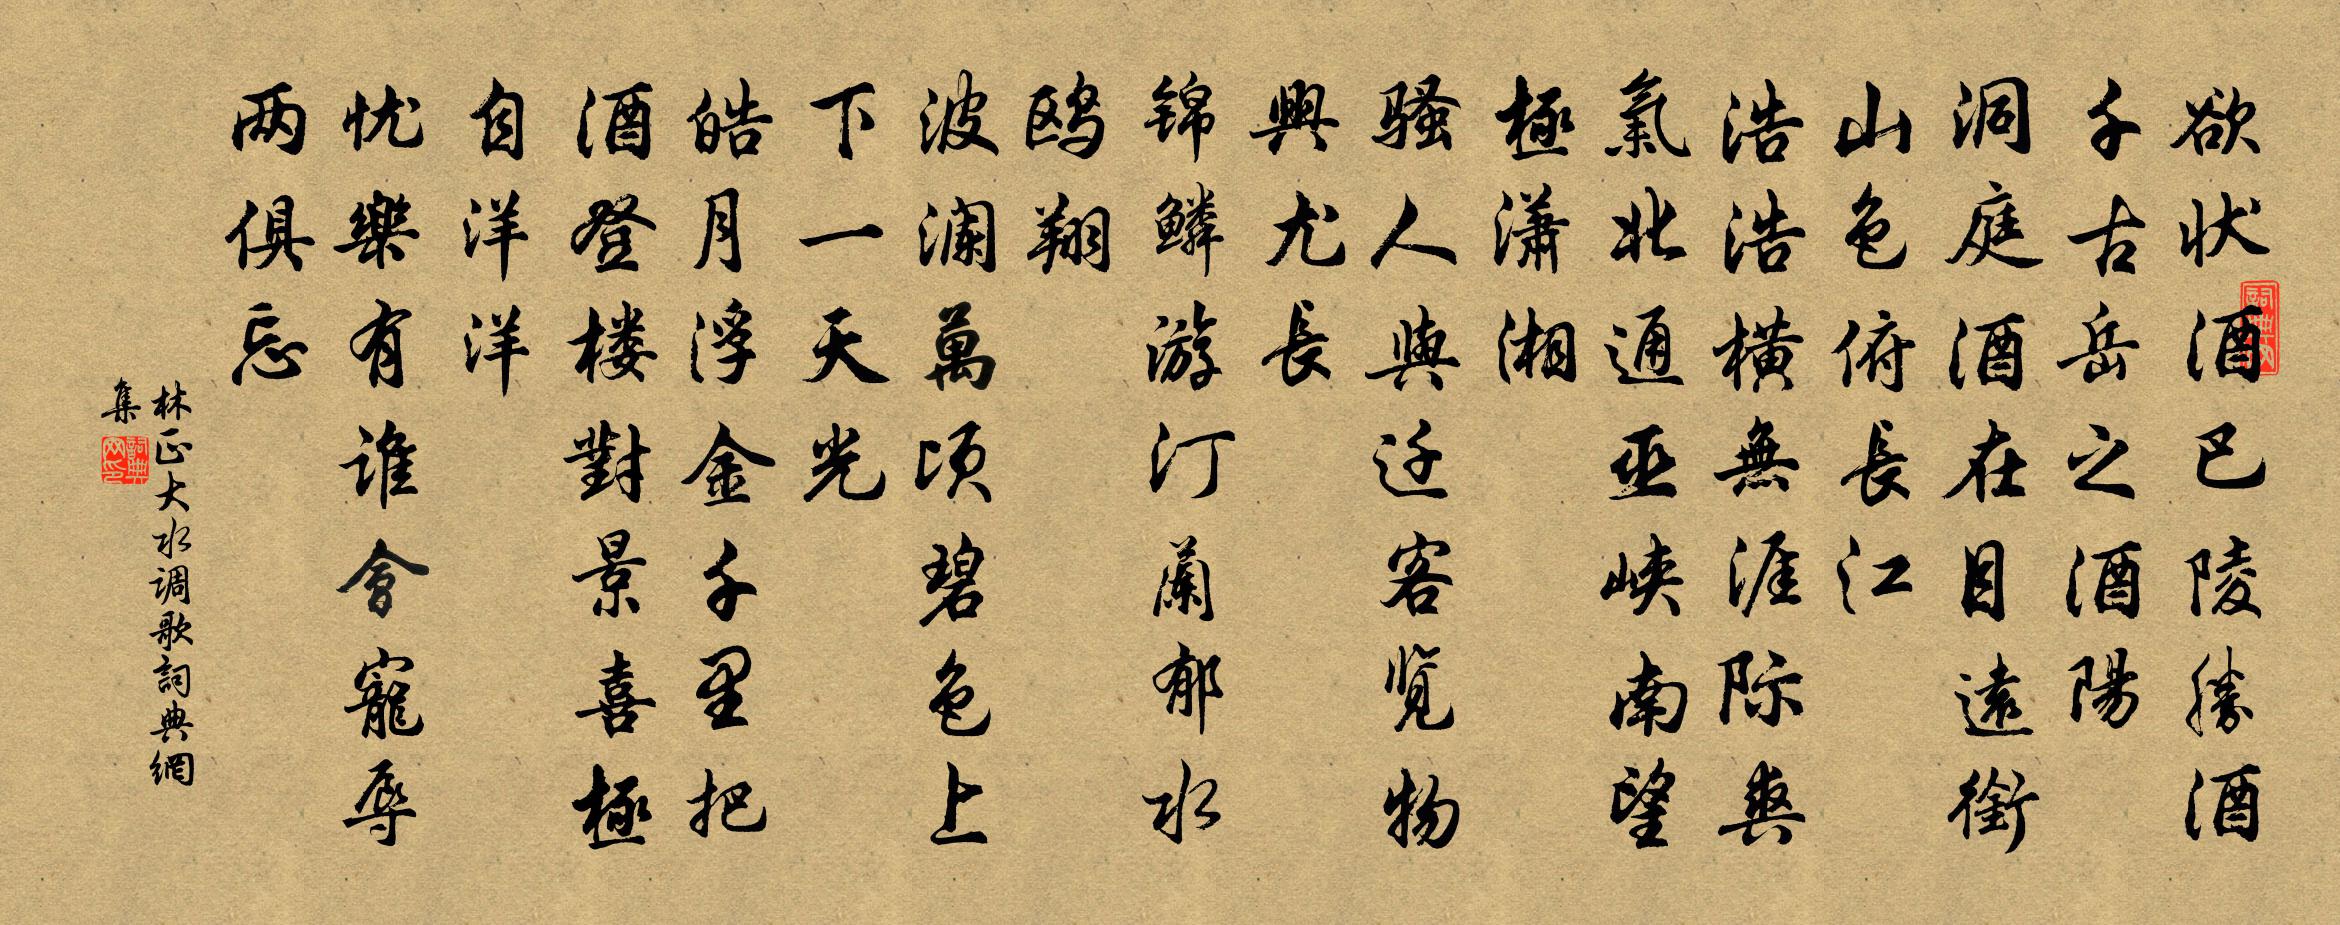 欲状酒巴陵勝酒
千古岳之酒陽
洞庭酒在目遠銜
山色俯長江
浩浩横無涯际爽
氣北通巫峡南望
極潇湘
骚人與迁客览物
興尤長
锦鳞游汀蘭郁水
鸥翔
波澜萬顷碧色上
下一天光
皓月浮金千里把
酒登楼對景喜極
自洋洋
忧樂有谁會寵辱
两俱忘
林正大水调歌詞典網
集
詞典网
詞典网印